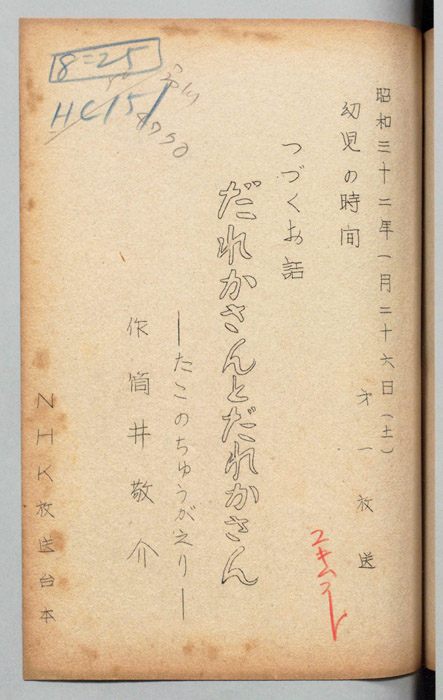 昭和三十二年一月二十六日(土)
才一放送
幼児の時間
つづくお話
だれかさんとだれかさん
―たこのちゅうがえり―
作 筒井敬介
NHK放送台本
8=25
HC151